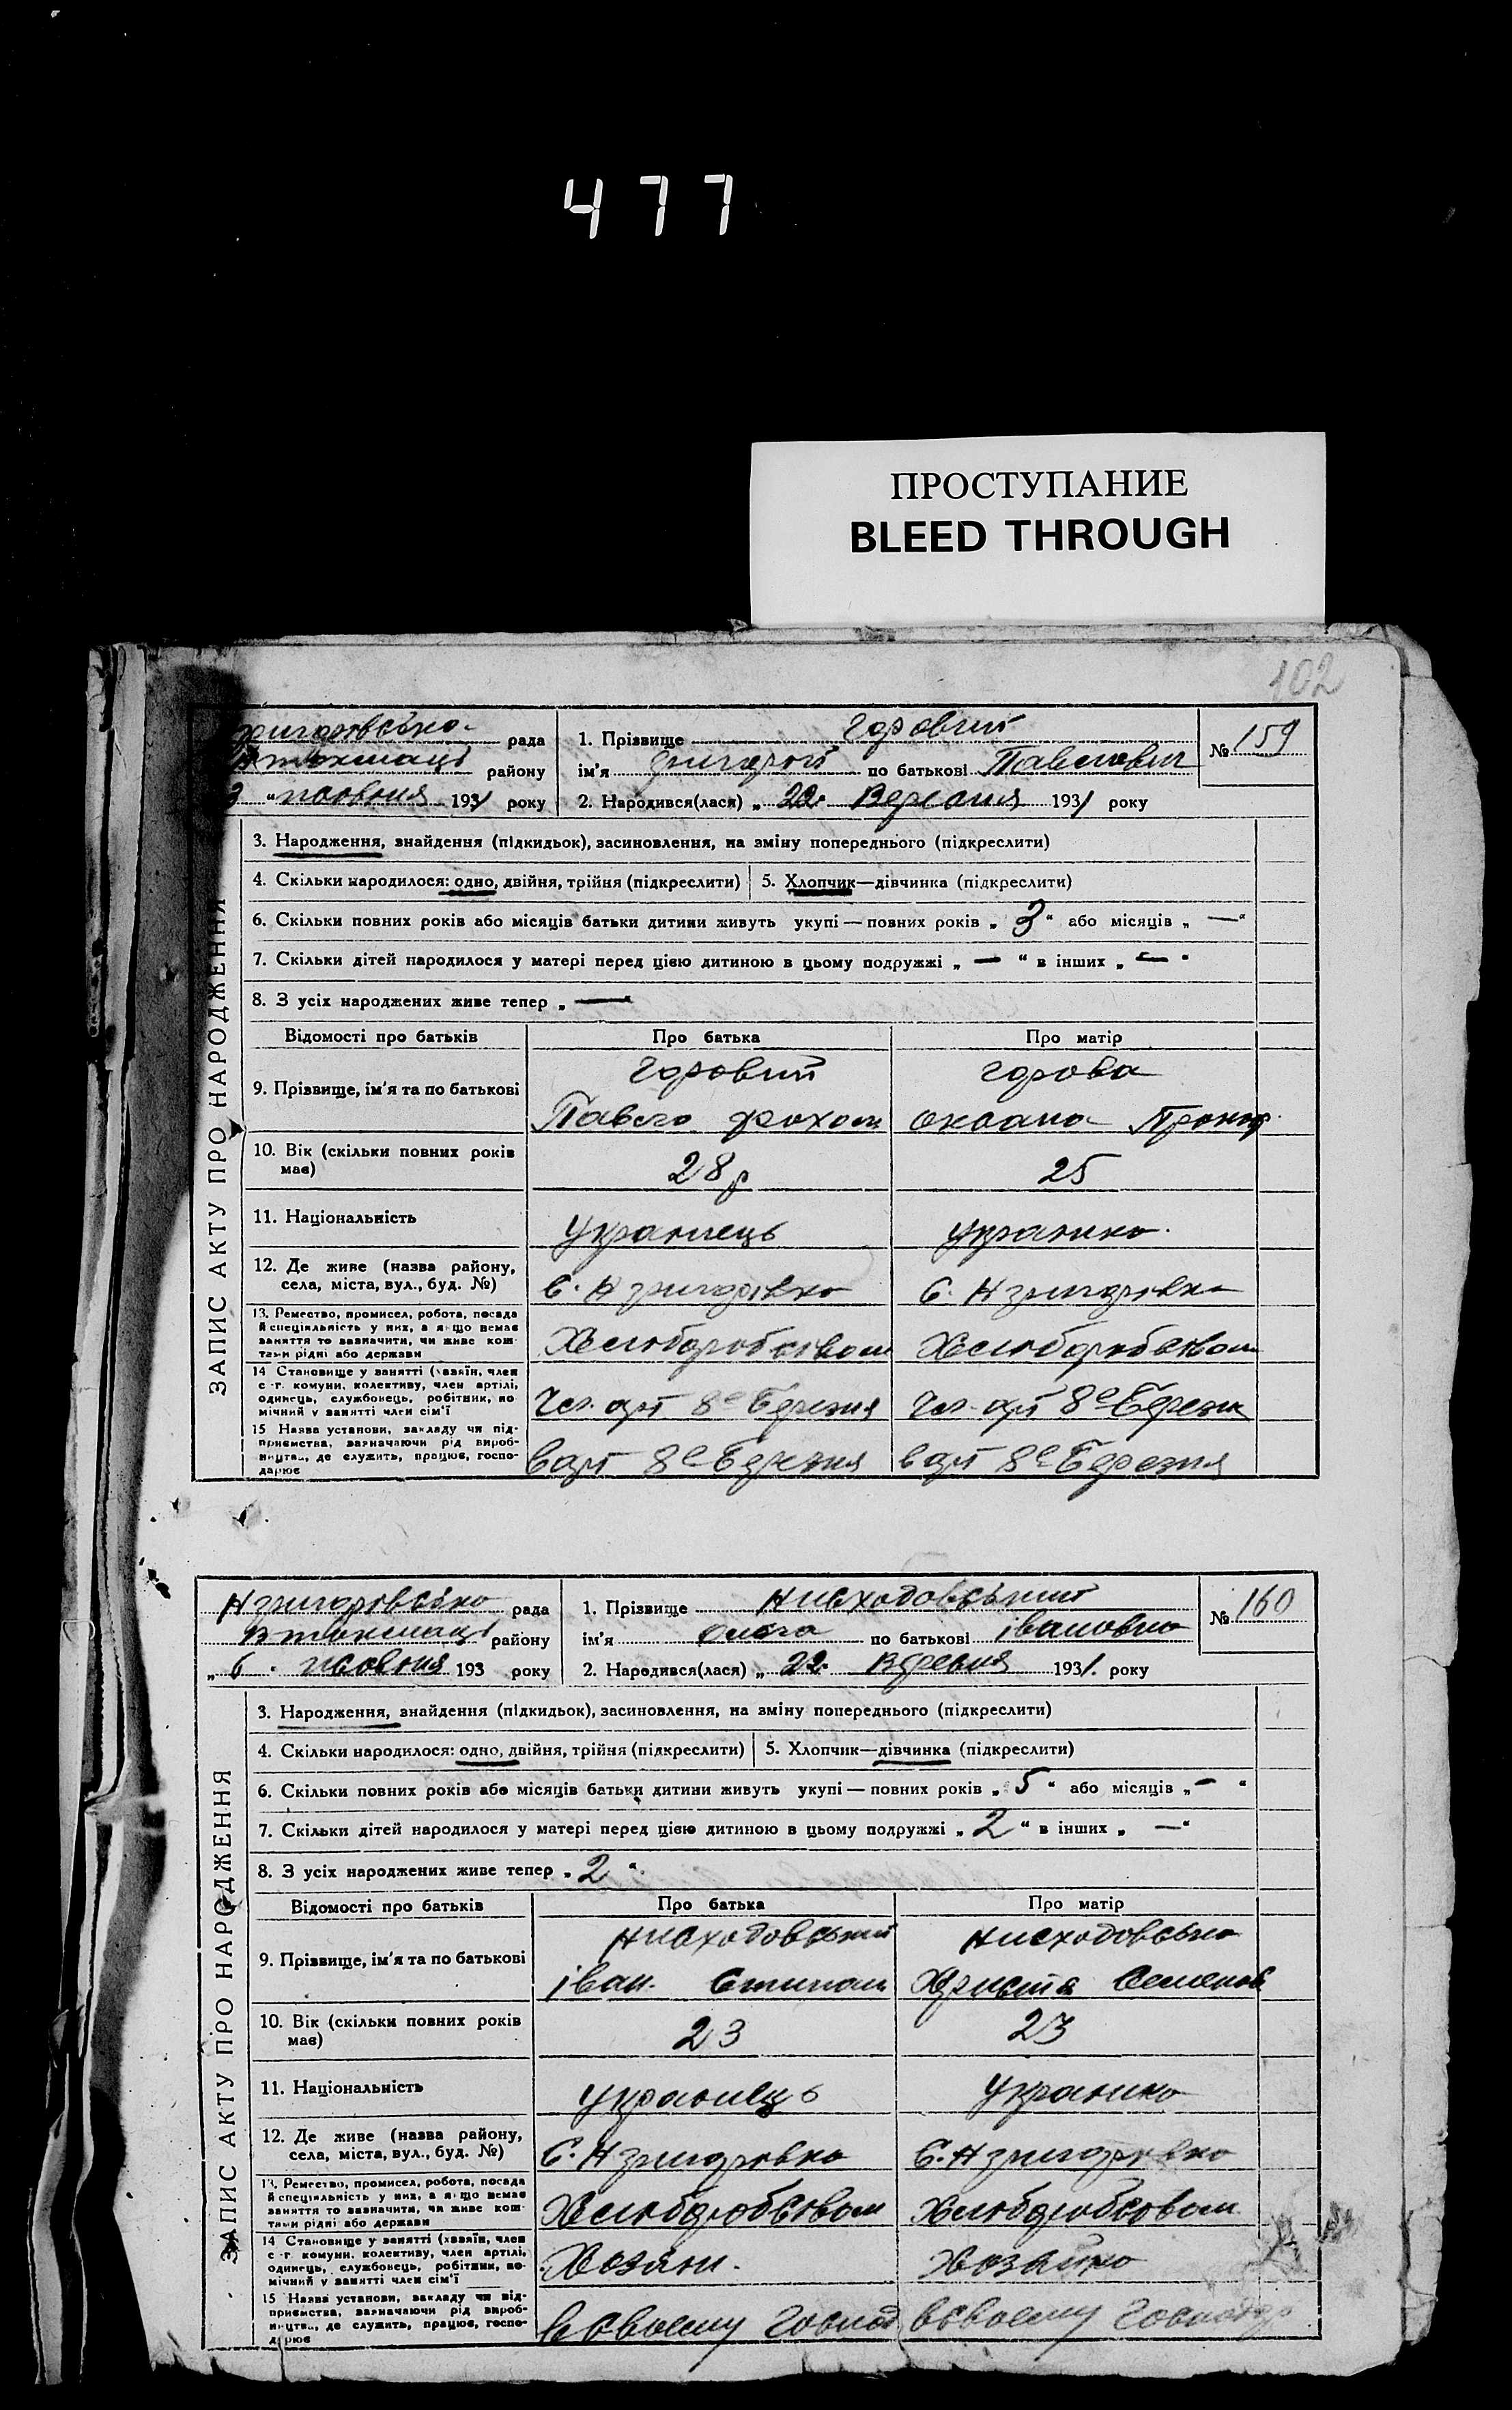 477
ПРОСТУПАНИЕ
BLEED THROUGH
102
ЗАПИС АКТУ ПРО НАРОДЖЕННЯ
рада
району
жовтня 1931 року
1. Прізвище Горовий
ім'я Григорій по батькові Павлович
2. Народився(лася) „ 22 Вересня 1931 року
№ 159
3. Народження, знайдення (підкидьок), засиновлення, на зміну попереднього (підкреслити)
4. Скільки народилося: одно, двійня, трійня (підкреслити) 5. Хлопчик—дівчинка (підкреслити)
6. Скільки повних років або місяців батьки дитини живуть укупі — повних років „ 3 “ або місяців „ — “
7. Скільки дітей народилося у матері перед цією дитиною в цьому подружжі „ — “ в інших „ — “
8. З усіх народжених живе тепер „ — “
Відомості про батьків Про батька Про матір
9. Прізвище, ім'я та по батькові
Горовий Горова
Павло
10. Вік (скільки повних років має) 28 р 25
11. Національність
12. Де живе (назва району, села, міста, вул., буд. №) С. Н Григорівка С. Н Григорівка
13. Ремество, промисел, робота, посада
й спеціяльність у них, а якщо немає
заняття то зазначити, чи живе кош-
тами рідні або держави
14 Становище у занятті (хазяїн, член
с.-г. комуни, колективу, член артілі,
одинець, службовець, робітник, по-
мічний у занятті член сім'ї
Чл. арт 8е Березня Чл. арт 8е
15 Назва установи, закладу чи під-
приємства, зазначаючи рід вироб-
ництва, де служить, працює, госпо-
дарює
в арт 8е Березня в арт 8е Березня
ЗАПИС АКТУ ПРО НАРОДЖЕННЯ
рада
району
„ 6 . жовтня 193 року
1. Прізвище Нисходовський
ім'я Ольга по батькові івановна
2. Народився(лася) „ 22 1931. року
№ 160
3. Народження, знайдення (підкидьок), засиновлення, на зміну попереднього (підкреслити)
4. Скільки народилося: одно, двійня, трійня (підкреслити) 5. Хлопчик—дівчинка (підкреслити)
6. Скільки повних років або місяців батьки дитини живуть укупі — повних років „ 5 “ або місяців „ — “
7. Скільки дітей народилося у матері перед цією дитиною в цьому подружжі „ 2 “ в інших „ — “
8. З усіх народжених живе тепер „ 2 “
Відомості про батьків Про батька Про матір
9. Прізвище, ім'я та по батькові
Нисходовський Нисходовська
іван. Христя Семенов
10. Вік (скільки повних років має) 23 23
11. Національність
12. Де живе (назва району, села, міста, вул., буд. №) С. Н Григорівка С. Н Григорівка
13. Ремество, промисел, робота, посада
й спеціяльність у них, а якщо немає
заняття то зазначити, чи живе кош-
тами рідні або держави
14 Становище у занятті (хазяїн, член
с.-г. комуни, колективу, член артілі,
одинець, службовець, робітник, по-
мічний у занятті член сім'ї
Хозяин. Хозяйка
15 Назва установи, закладу чи під-
приємства, зазначаючи рід вироб-
ництва, де служить, працює, госпо-
дарює
в своему Господ в своему